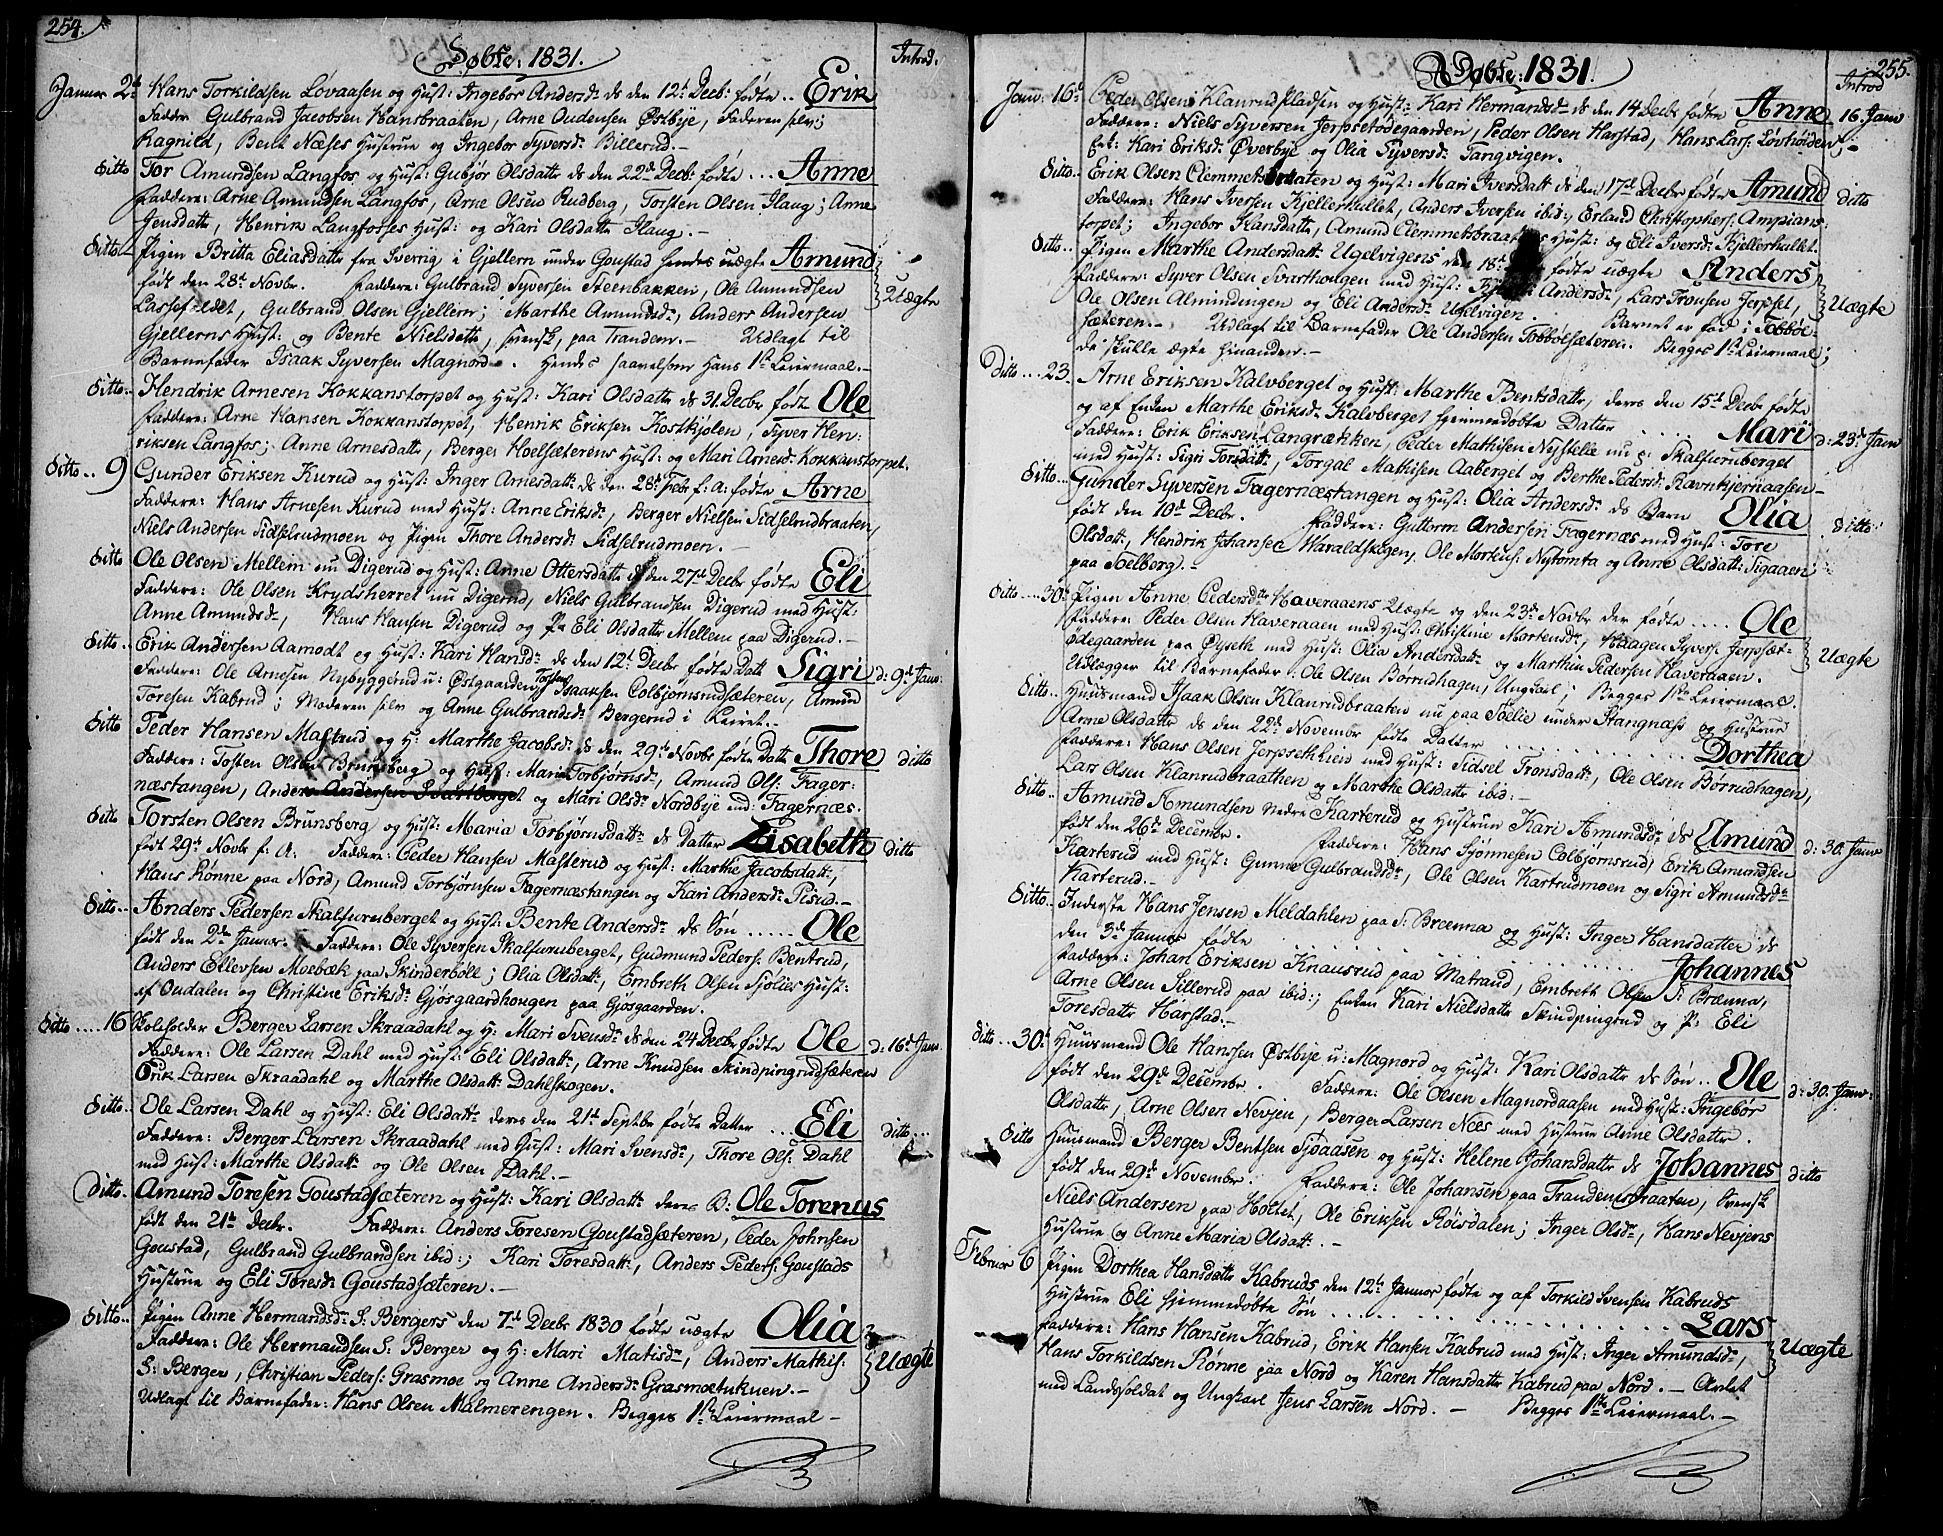 254.
Døbte: 1831.
Introd:
Januar 2d Hans Torkildsen Løvaasen og Hust: Ingebor Andersd: ds den 12t Decbr. fødte .. Erik
Faddre Gulbrand Jacobsen Hansbraaten, Arne Oudensen Østbye, Faderen selv;
Ragnild, Bent Næses Hustrue og Ingebor Syversd: Billerud.-
ditto Tor Amundsen Langfos og Hust: Gubjør Olsdatte ds den 22d Decbr: fødte ... Anne
Faddere: Arne Amundsen Langfos, Arne Olsen Rudberg, Torsten Olsen Haug; Anne
Jensdatte, Henrik Langfosses Hust: og Kari Olsdatte Haug.-
ditto Pigen Britta Eliasdatte fra Sverrig i Gjellern under Goustad hendes uægte Amund
født den 28t Novbr. Faddere: Gulbrand Syversen Steenbakken, Ole Amundsen } Uægte
Lassefoldet, Gulbrand Olsen Gjellern; Marthe Amundsd:, Anders Andersen
Gjellerns Hust: og Bente Nielsdatte, svensk, paa Trandem.- Udlagt til
Barnefader Isaak Syversen Magnord. Hendes saavelsom Hans 1ste Leiermaal.-
ditto.. Hendrik Arnesen Kokkanstorpet og Hust: Kari Olsdatte ds 31. Decbr født Ole
Faddere: Arne Hansen Kokkanstorpet, Henrik Eriksen Kostkjølen, Syver Hen:
riksen Langfos; Anne Arnesdatte, Berger Hoelsæterens Hust: og Mari Arnesd: Kokkanstorpet.
ditto.. 9 Gunder Eriksen Kurud og Hust: Inger Arnesdatt: ds den 28t Febr f: A: fødte Arne
Faddere: Hans Arnesen Kurud med Hust: Anne Eriksd:, Berger Nielsen Sidselrudbraaten,
Niels Andersen Sidselrudmoen og Pigen Thore Andersd: Sidselrudmoen.-
ditto Ole Olsen Mellem nu Digerud og Hust: Anne Ottersdatte ds den 27d Decbr fødte Eli
Faddere: Ole Olsen Krydsherret nu Digerud, Niels Gulbrandsen Digerud med Hust:
Anne Amundsd:, Hans Hansen Digerud og P: Eli Olsdatte Mellem paa Digerud.-
ditto.. Erik Andersen Aamodt og Hust: Kari Hansd: ds den 12t Decbr fødte Datt Sigri d: 9d Jan:
Faddere: Ole Arnesen Nybyggerud u: Østgaarden, Torsten Isaaksen Colbjørnsrudsæteren, Amund
Toresen Kabrud; Moderen selv og Anne Gulbrandsd: Bergerud i Leiret.-
ditto Peder Hansen Mastrud og H: Marthe Jacobsd: ds den 29t Novbr fødte Datte Thore ditto
Faddere: Tosten Olsen Brunsberg og Hust: Maria Torbjørnsd:, Amund Ols: Fager:
næstangen, Anders Andersen Svartberget og Mari Olsd: Nordbye und: Fagernæs.
ditto Torsten Olsen Brunsberg og Hust: Maria Torbjørnsdatt: ds Datter Lisabeth ditto
født 29t Novbr f: A: Faddere: Peder Hansen Masterud og Hust: Marthe Jacobsdatt:,
Hans Rønne paa Nord, Amund Torbjørnsen Fagernæstangen og Kari Andersd: Pisud.-
ditto.. Anders Pedersen Skalfurnberget og Hust: Bente Andersd: ds Søn ..... Ole
født den 2de Januar. Faddere: Ole Syversen Skalfurnberget, Gudmund Peders: Bentrud,
Anders Ellevsen Moebæk paa Skinderbøll; Olia Olsdatt:, Embreth Olsen Sjølies Hust:
af Oudalen og Christine Eriksd: Gjøsgaardhougen paa Gjøsgaarden.
ditto .... 16 Rolfolder Berger Larsen Skraadahl og H: Mari Svensd: ds den 24 Decbr fødte Ole d: 16d Jan:
Faddere: Ole Larsen Dahl med Hust: Eli Olsdatt:, Arne Knudsen Skindpingrudsæteren
Erik Larsen Skraadahl og Marthe Olsdatt: Dahlskogen.
ditto.. Ole Larsen Dahl og Hust: Eli Olsdatt: deres den 21d Septbr fødte Datter ... Eli ditto ...
Faddere: Berger Larsen Skraadahl med Hust: Mari Svensd:, Thore Ols: Dahl
med Hust: Marthe Olsdatt: og Ole Olsen Dahl.-
ditto. Amund Toresen Goustadsæteren og Hust: Kari Olsdatt: deres B: Ole Torenus
født den 21t Decbr. Faddere: Anders Toresen Goustadsæteren, Peder Johnsen
Goustad, Gulbrand Gulbrandsen ibid:; Kari Toresdatt:, Anders Peders: Goustads
Hustrue og Eli Toresd: Goustadsæteren.-
ditto.. Pigen Anne Hermandsd: S: Bergers den 7d Decbr 1830 fødte uægte Olia
Faddere: Ole Hermandsen S: Berger og H: Mari Matisd:, Anders Mathis: } Uægte
S: Berger, Christian Peders: Grasmoe og Anne Andersd: Grasmoetukuen.-
Udlagt til Barnefader: Hans Olsen Malmerengen. Begges 1ste Leiermaal -
255.
Døbte: 1831.
Introd
Janv: 16d Peder Olsen Klanrud Pladsen og Hust: Kari Hermandsd: ds den 14 Decbr fødte Anne 16. Janv
Faddere: Niels Syversen Jerpsetødegaarden, Peder Olsen Harstad, Hans Lars: Lovhøiden;
Ent: Kari Eriksd: Øverbye og Olia Syversd: Tangvigen.
ditto.. Erik Olsen Clemmetsbraaten og Hust: Mari Iversdatt: ds den 17d Decbr fødte Amund ditto
Faddere: Hans Iversen Kjellerhullet, Anders Iversen ibid:, Erland Christophers: Ampians:
torpet; Ingebor Hansdatte, Amund Clemmetsbraatens Hust: og Eli Iversd: Kjellerhullet.
ditto.. Pigen Marthe Andersdatt: Ugelvigens den 18d fødte uægte Anders
Faddere: Syver Olsen Svarthougen med Hust: Andersd:, Lars Tronsen Jerpset, } Uægte
Ole Olsen Almindingen og Eli Andersd: Ugelvigen. Barnet er fød i Tobbøl:
sæteren.- Udlagt til Barnefader Ole Andersen Tobbølsæteren. Begges 1ste Leiermaal;
de skulle ægte hinanden.-
Ditto .... 23. Arne Eriksen Kalvberget og Hust: Marthe Bentsdatte, deres den 15d Decbr fødte
og af Enken Marthe Eriksd: Kalvberget hjemmedøbte Datter .... Mari d: 23d Janv
Faddere: Erik Eriksen Langrækken, Peder Mathisen Nysstelle nu p: Skalfurnberget
med Hust: Sigri Torsdatt:, Torgal Mathisen Aaberget og Berthe Pedersd: Ravnkjernaasen-
ditto... Gunder Syversen Fagernæstangen og Hust: Olia Andersd: ds Barn Olia ditto
født den 10d Decbr. Faddere: Guttorm Andersen Fagernæs med Hust: Tore
Olsdatt:, Hendrik Johansen Waraldskogen, Ole Morkus: Nytomta og Anne Olsdatt: Sigaaen
paa Foelberg.-
ditto.....30d Pigen Anne Pedersdtr Haveraaens Uægte og den 23d Novbr der fødte ..... Ole
Faddere: Peder Olsen Haveraaen med Hust: Christine Mortensd:, Haagen Syvers: Jerpsæt: } Uægte
ødegaarden paa Øyseth med Hust: Olia Andersdatt: og Marthin Pedersen Haveraaen.
Udlægger til Barnefader: Ole Olsen Børrudhagen, Ungkarl; Begges 1ste Leiermaal.
ditto.. Huusmand Isaak Olsen Klanrudbraaten nu paa Sølie under Stangnæss og Hustrue
Arne Olsdatte ds den 22d November fødte Datter ............. Dorthea
Faddere: Hans Olsen Jerpsethlieid med Hust: Sidsel Tronsdatt:, Ole Olsen Børrudhagen,
Lars Olsen Klanrudbraathen og Marthe Olsdatte ibid:-
ditto.. Amund Amundsen nedre Karterud og Hustrue Kari Amundsd: ds Amund d: 30. Janv
født den 26d Decembr. Faddere: Hans Sjønnesen Colbjørnsrud, Erik Amundsen
Karterud med Hust: Gunne Gulbrandsd:, Ole Olsen Kartrudmoen og Sigri Amundsd:
Karterud.-
ditto.. Inderste Hans Jensen Meldahlen paa S: Brænna og Hust: Inger Hansdatter ds
den 3d Januar fødte ............. Johannes
Faddere: Johan Eriksen Knausrud paa Matrand, Embreth Olsen S: Brænna,
Arne Olsen Sillerud paa ibid:; Enken Kari Nielsdatte Skindpingrud og P: Eli
Toresdatte Harstad.-
ditto...30d Huusmand Ole Hansen Østbye u: Magnord og Hust: Kari Olsdatte ds Søn .. Ole d: 30. Janv:
født den 29d Decembr. Faddere: Ole Olsen Magnordaasen med Hust: Ingebor
Olsdatte, Arne Olsen Nevjen, Berger Larsen Næs med Hustrue Anne Olsdatte.
ditto Huusmand Berger Bentsen Sjøaasen og Hust: Helene Johansdatte ds Johannes ditto
født den 29d Novembr. Faddere: Ole Johansen paa Trandemsbraaten, Svensk
Niels Andersen paa Holtet, Ole Eriksen Røisdalen; Inger Olsd:, Hans Nevjens
Hustrue og Anne Maria Olsdatt:.-
Februar 6 Pigen Dorthea Hansdatte Kabruds den 12te Januar fødte og af Torkild Svensen Kabruds
Hustrue Eli hjemmedøbte Søn ............ Lars
Faddere: Hans Hansen Kabrud, Erik Hansen Kabrud med Hust: Inger Amundsd:, } Uægte
Hans Torkildsen Rønne paa Nord og Karen Hansdatte Kabrud paa Nord.- Avlet
med Landssoldat og Ungkarl Jens Larsen Nord.- Begges 1ste Leiermaal.-